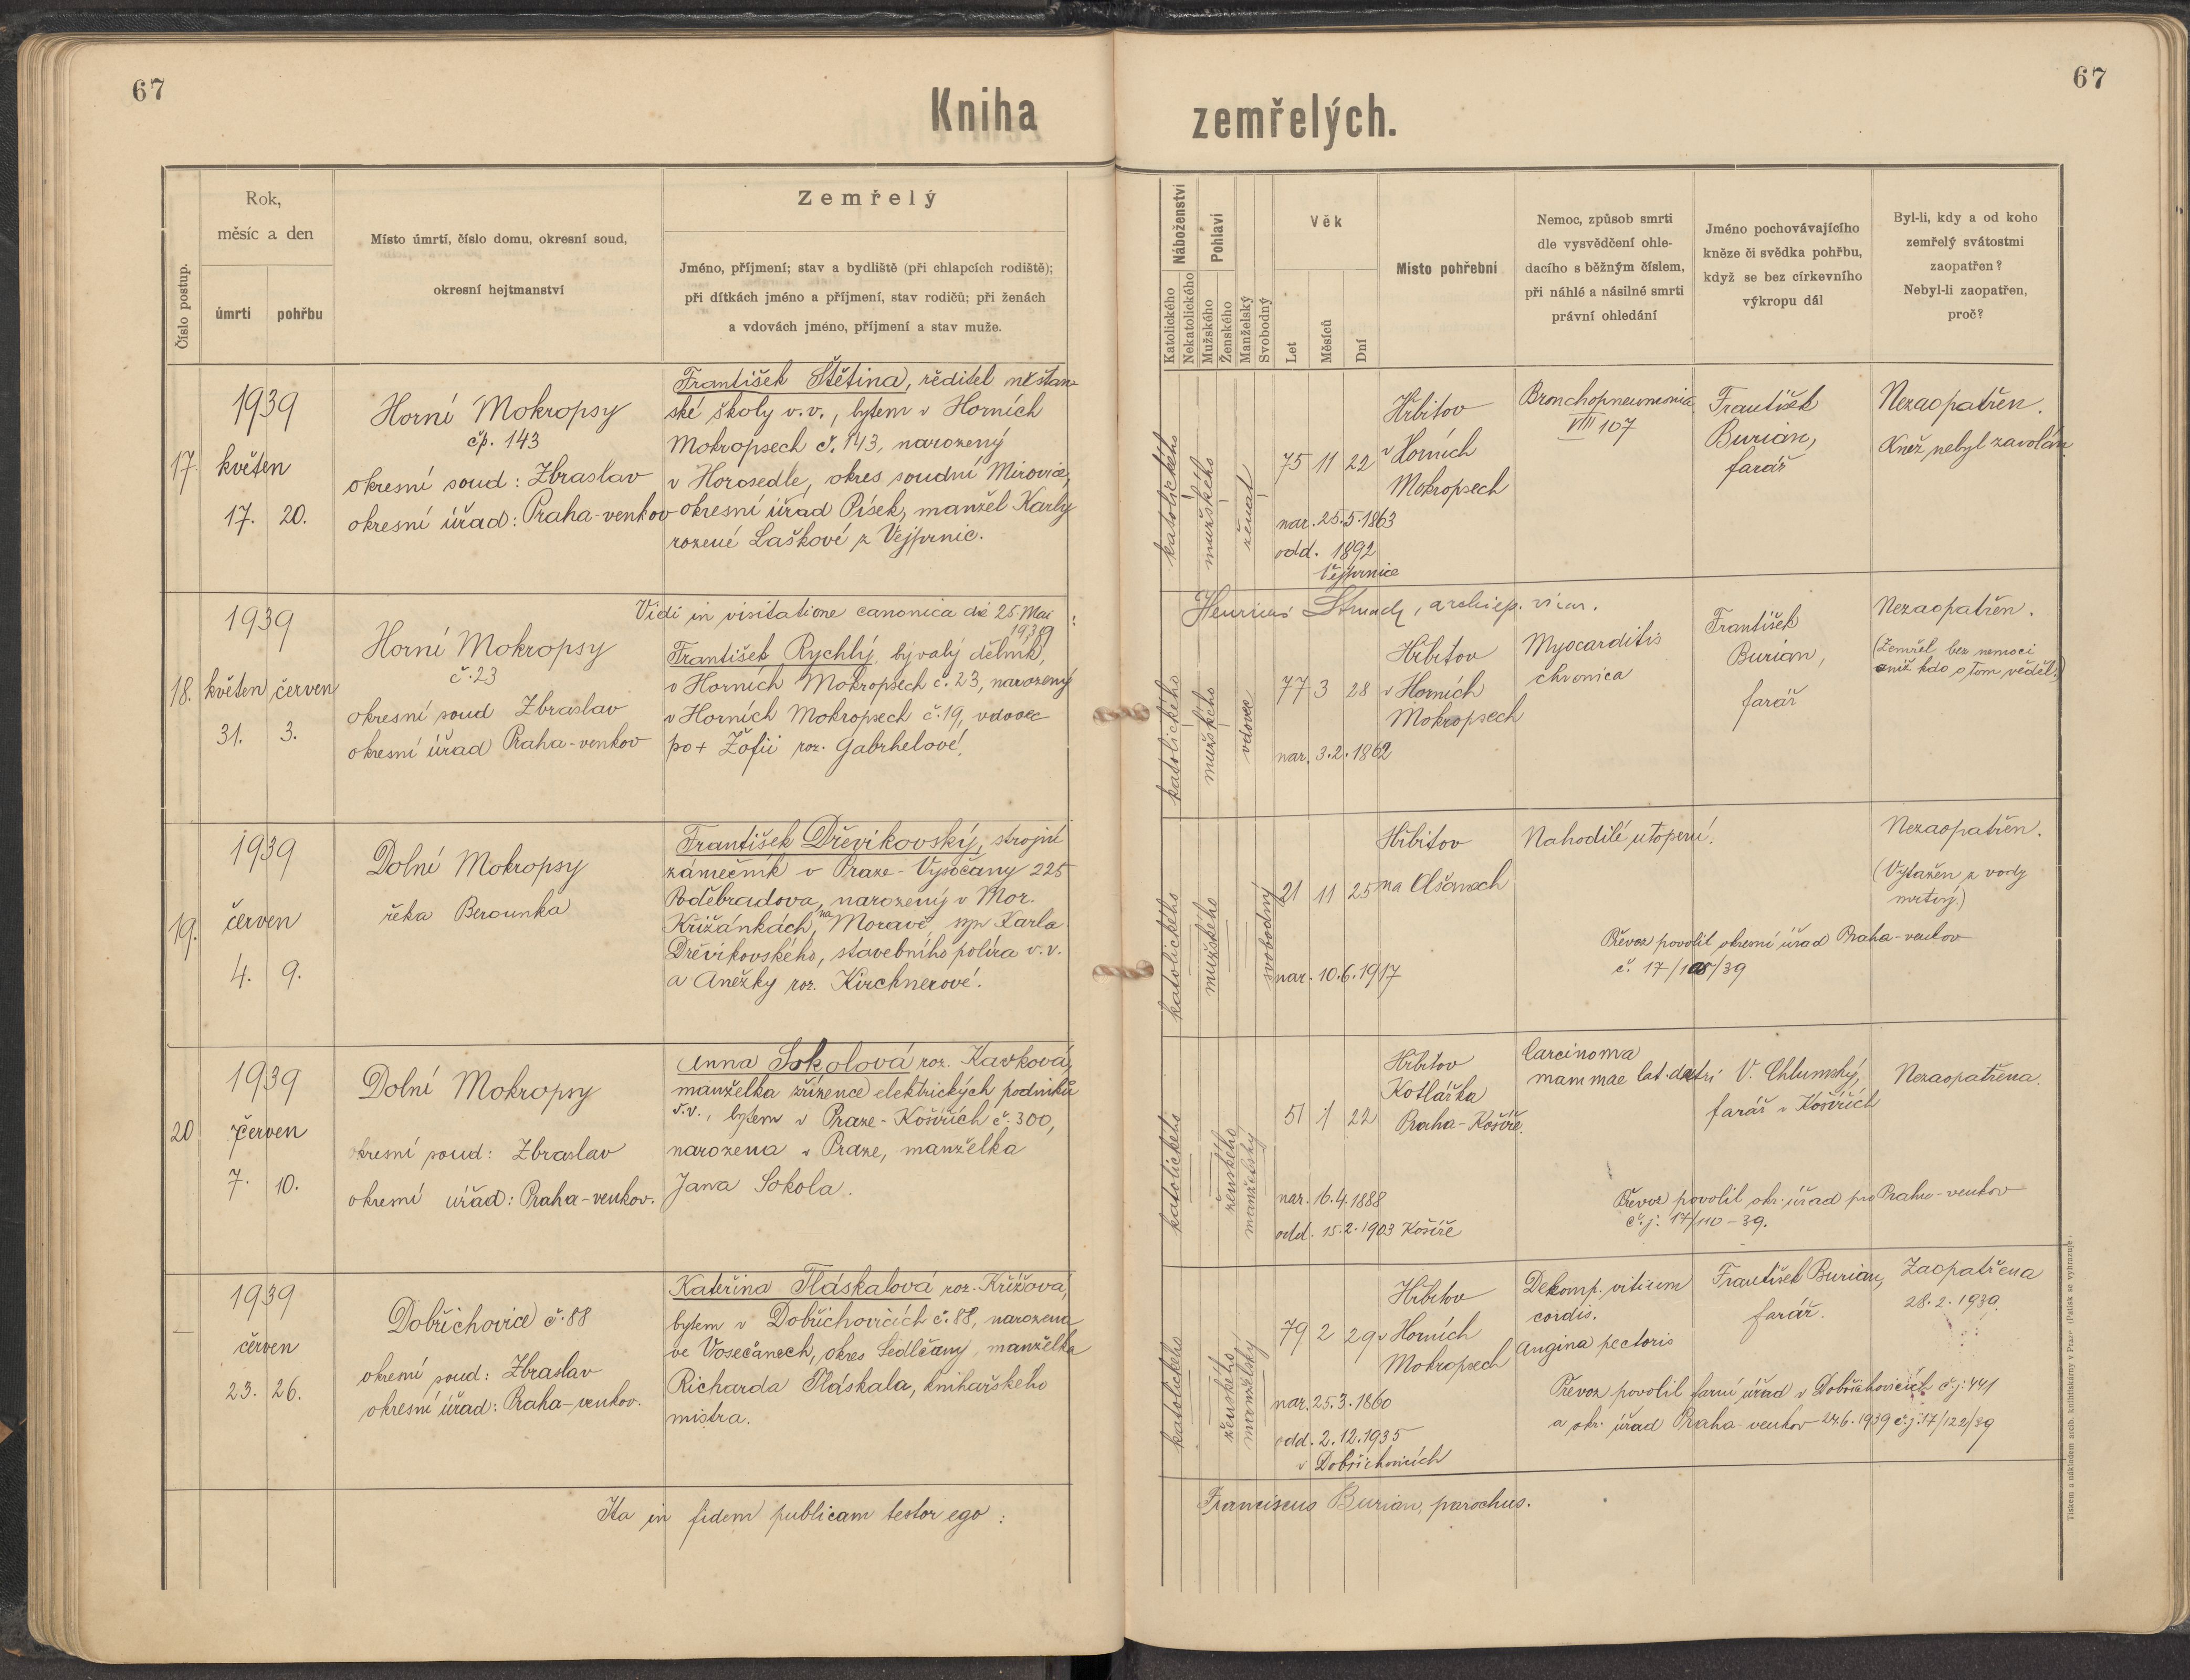 67
67
Kniha zemřelých.
Číslo postup.
Rok,
měsíc a den
úmrtí
pohřbu
Místo úmrtí, číslo domu, okresní soud,
okresní hejtmanství
Zemřelý
Jméno, příjmení; stav a bydliště (při chlapcích rodiště);
při dítkách jméno a příjmení, stav rodičů; při ženách
a vdovách jméno, příjmení a stav muže.
Náboženství
Katolického
Nekatolického
Pohlaví
Mužského
Ženského
Manželský
Svobodný
Věk
Let
Měsíců
Dní
Místo pohřební
Nemoc, způsob smrti
dle vysvědčení ohle-
dacího s běžným číslem,
při náhlé a násilné smrti
právní ohledání
Jméno pochovávajícího
kněze či svědka pohřbu,
když se bez církevního
výkropu dál
Byl-li, kdy a od koho
zemřelý svátostmi
zaopatřen?
Nebyl-li zaopatřen,
proč?
17.
1939
květen
17. 20.
Horní Mokropsy
čp. 143
okresní soud: Zbraslav
okresní úřad: Praha-venkov
František Štětina, ředitel měšťan-
ské školy v.v., bytem v Horních
Mokropsech č. 143, narozený
v Horosedle, okres soudní Mirovice,
okresní úřad Písek, manžel Karly
rozené Laškové z Vejprnic.
katolického
mužského
ženat
75 11 22
nar. 25.5.1863
odd. 1892
Vejprnice
Hřbitov
v Horních
Mokropsech
Bronchopneumonia
VIII 107
František
Burian,
farář
Nezaopatřen.
Kněz nebyl zavolán.
Vidi in visitatione canonica die 25. Mai
1939 :
Henricus , archiep. vicar.
18.
1939
květen červen
31. 3.
Horní Mokropsy
č. 23
okresní soud Zbraslav
okresní úřad Praha-venkov
František Rychlý, bývalý dělník,
v Horních Mokropsech č. 23, narozený
v Horních Mokropsech č. 19, vdovec
po + Žofii roz. Gabrhelové.
katolického
mužského
vdovec
77 3 28
nar. 3.2.1862
Hřbitov
v Horních
Mokropsech
Myocarditis
chronica
František
Burian,
farář
Nezaopatřen.
(Zemřel bez nemoci
aniž kdo o tom věděl.)
19.
1939
červen
4. 9.
Dolní Mokropsy
řeka Berounka
František Dřevikovský, strojní
zámečník v Praze-Vysočany 225
Poděbradova, narozený v Mor.
Křižánkách, na Moravě, syn Karla
Dřevikovského, stavebního políra v.v.
a Anežky roz. Kirchnerové.
katolického
mužského
svobodný
21 11 25
nar. 10.6.1917
Hřbitov
na Olšanech
Nahodilé utopení.
Nezaopatřen.
(Vytažen z vody
mrtvý.)
Převoz povolil okresní úřad Praha-venkov
č. 17/108/39
20
1939
červen
7. 10.
Dolní Mokropsy
okresní soud: Zbraslav
okresní úřad: Praha-venkov.
Anna Sokolová roz. Kavková,
manželka zřízence elektrických podniků
v.v., bytem v Praze-Košířích č. 300,
narozena v Praze, manželka
Jana Sokola.
katolického
ženského
manželský
51 1 22
nar. 16.4.1888
odd. 15.2.1903 Košíře
Hřbitov
Kotlářka
Praha-Košíře.
Carcinoma
mammae lat. dextri
V. Chlumský,
farář v Košířích
Nezaopatřena.
Převoz povolil okr. úřad pro Prahu-venkov
č.j. 17/110-39.
—
1939
červen
23. 26.
Dobřichovice č. 88
okresní soud: Zbraslav
okresní úřad: Praha-venkov.
Kateřina Tláskalová roz. Křížová,
bytem v Dobřichovicích č. 88, narozena
ve Vosečanech, okres Sedlčany, manželka
Richarda Tláskala, knihařského
mistra.
katolického
ženského
manželský
79 2 29
nar. 25.3.1860
odd. 2.12.1935
v Dobřichovicích
Hřbitov
v Horních
Mokropsech
Dekomp. vitium
cordis.
Angina pectoris
František Burian,
farář.
Zaopatřena
28.2.1939.
Převoz povolil farní úřad v Dobřichovicích č.j. 441
a okr. úřad Praha-venkov 24.6.1939 č.j. 17/122/39
Ita in fidem publicam testor ego :
Franciscus Burian, parochus.
Tiskem a nákladem arcib. knihtiskárny v Praze. (Patisk se vyhrazuje.)